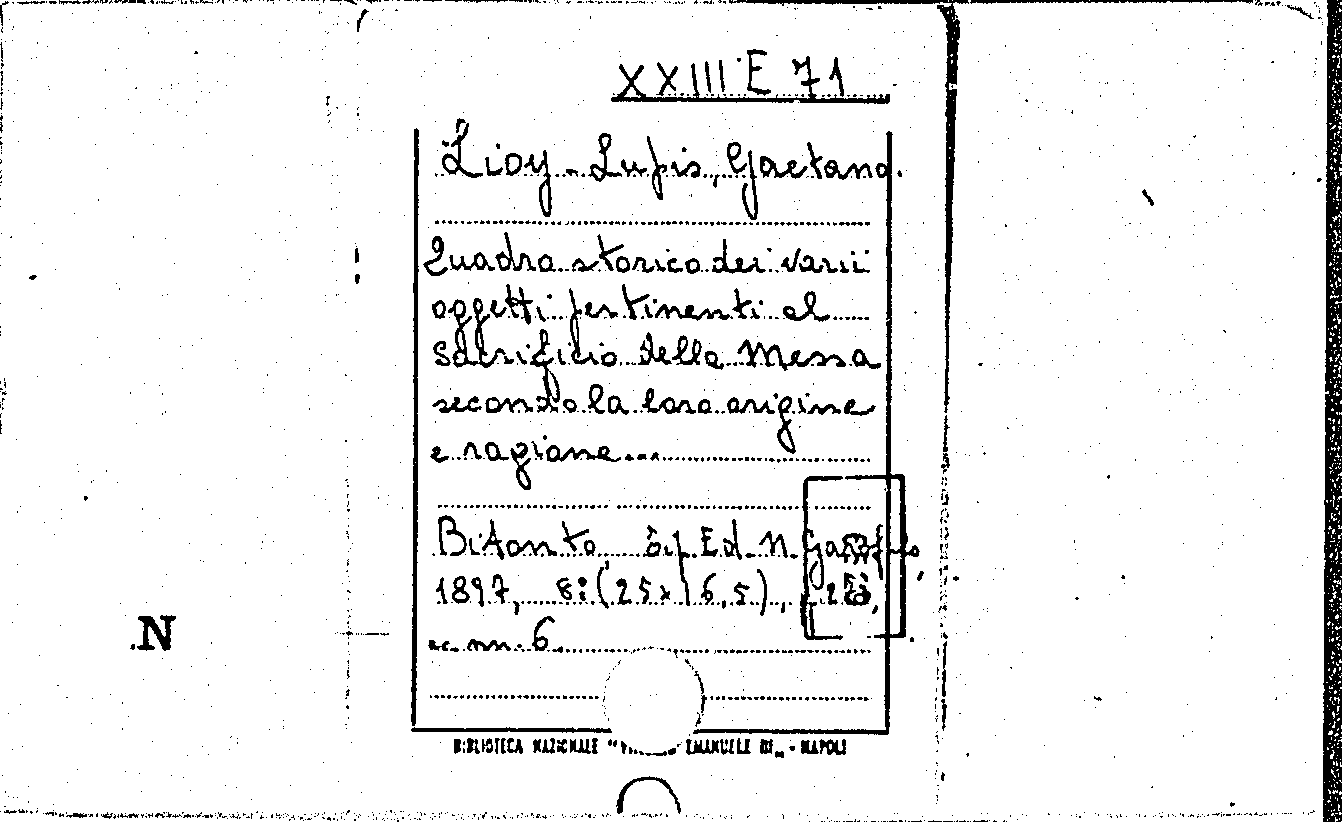 XXIII E 71
Lioy-Lupis, Gaetano.
Quadro storico dei varii
oggetti pertinenti al
sacrificio della Messa
secondo la loro origine
e ragione...
Bitonto, Ed. N. Garofalo,
1897, 8° (25x16,5),
6.
N
BIBLIOTECA NAZIONALE " EMANUELE III„ - NAPOLI